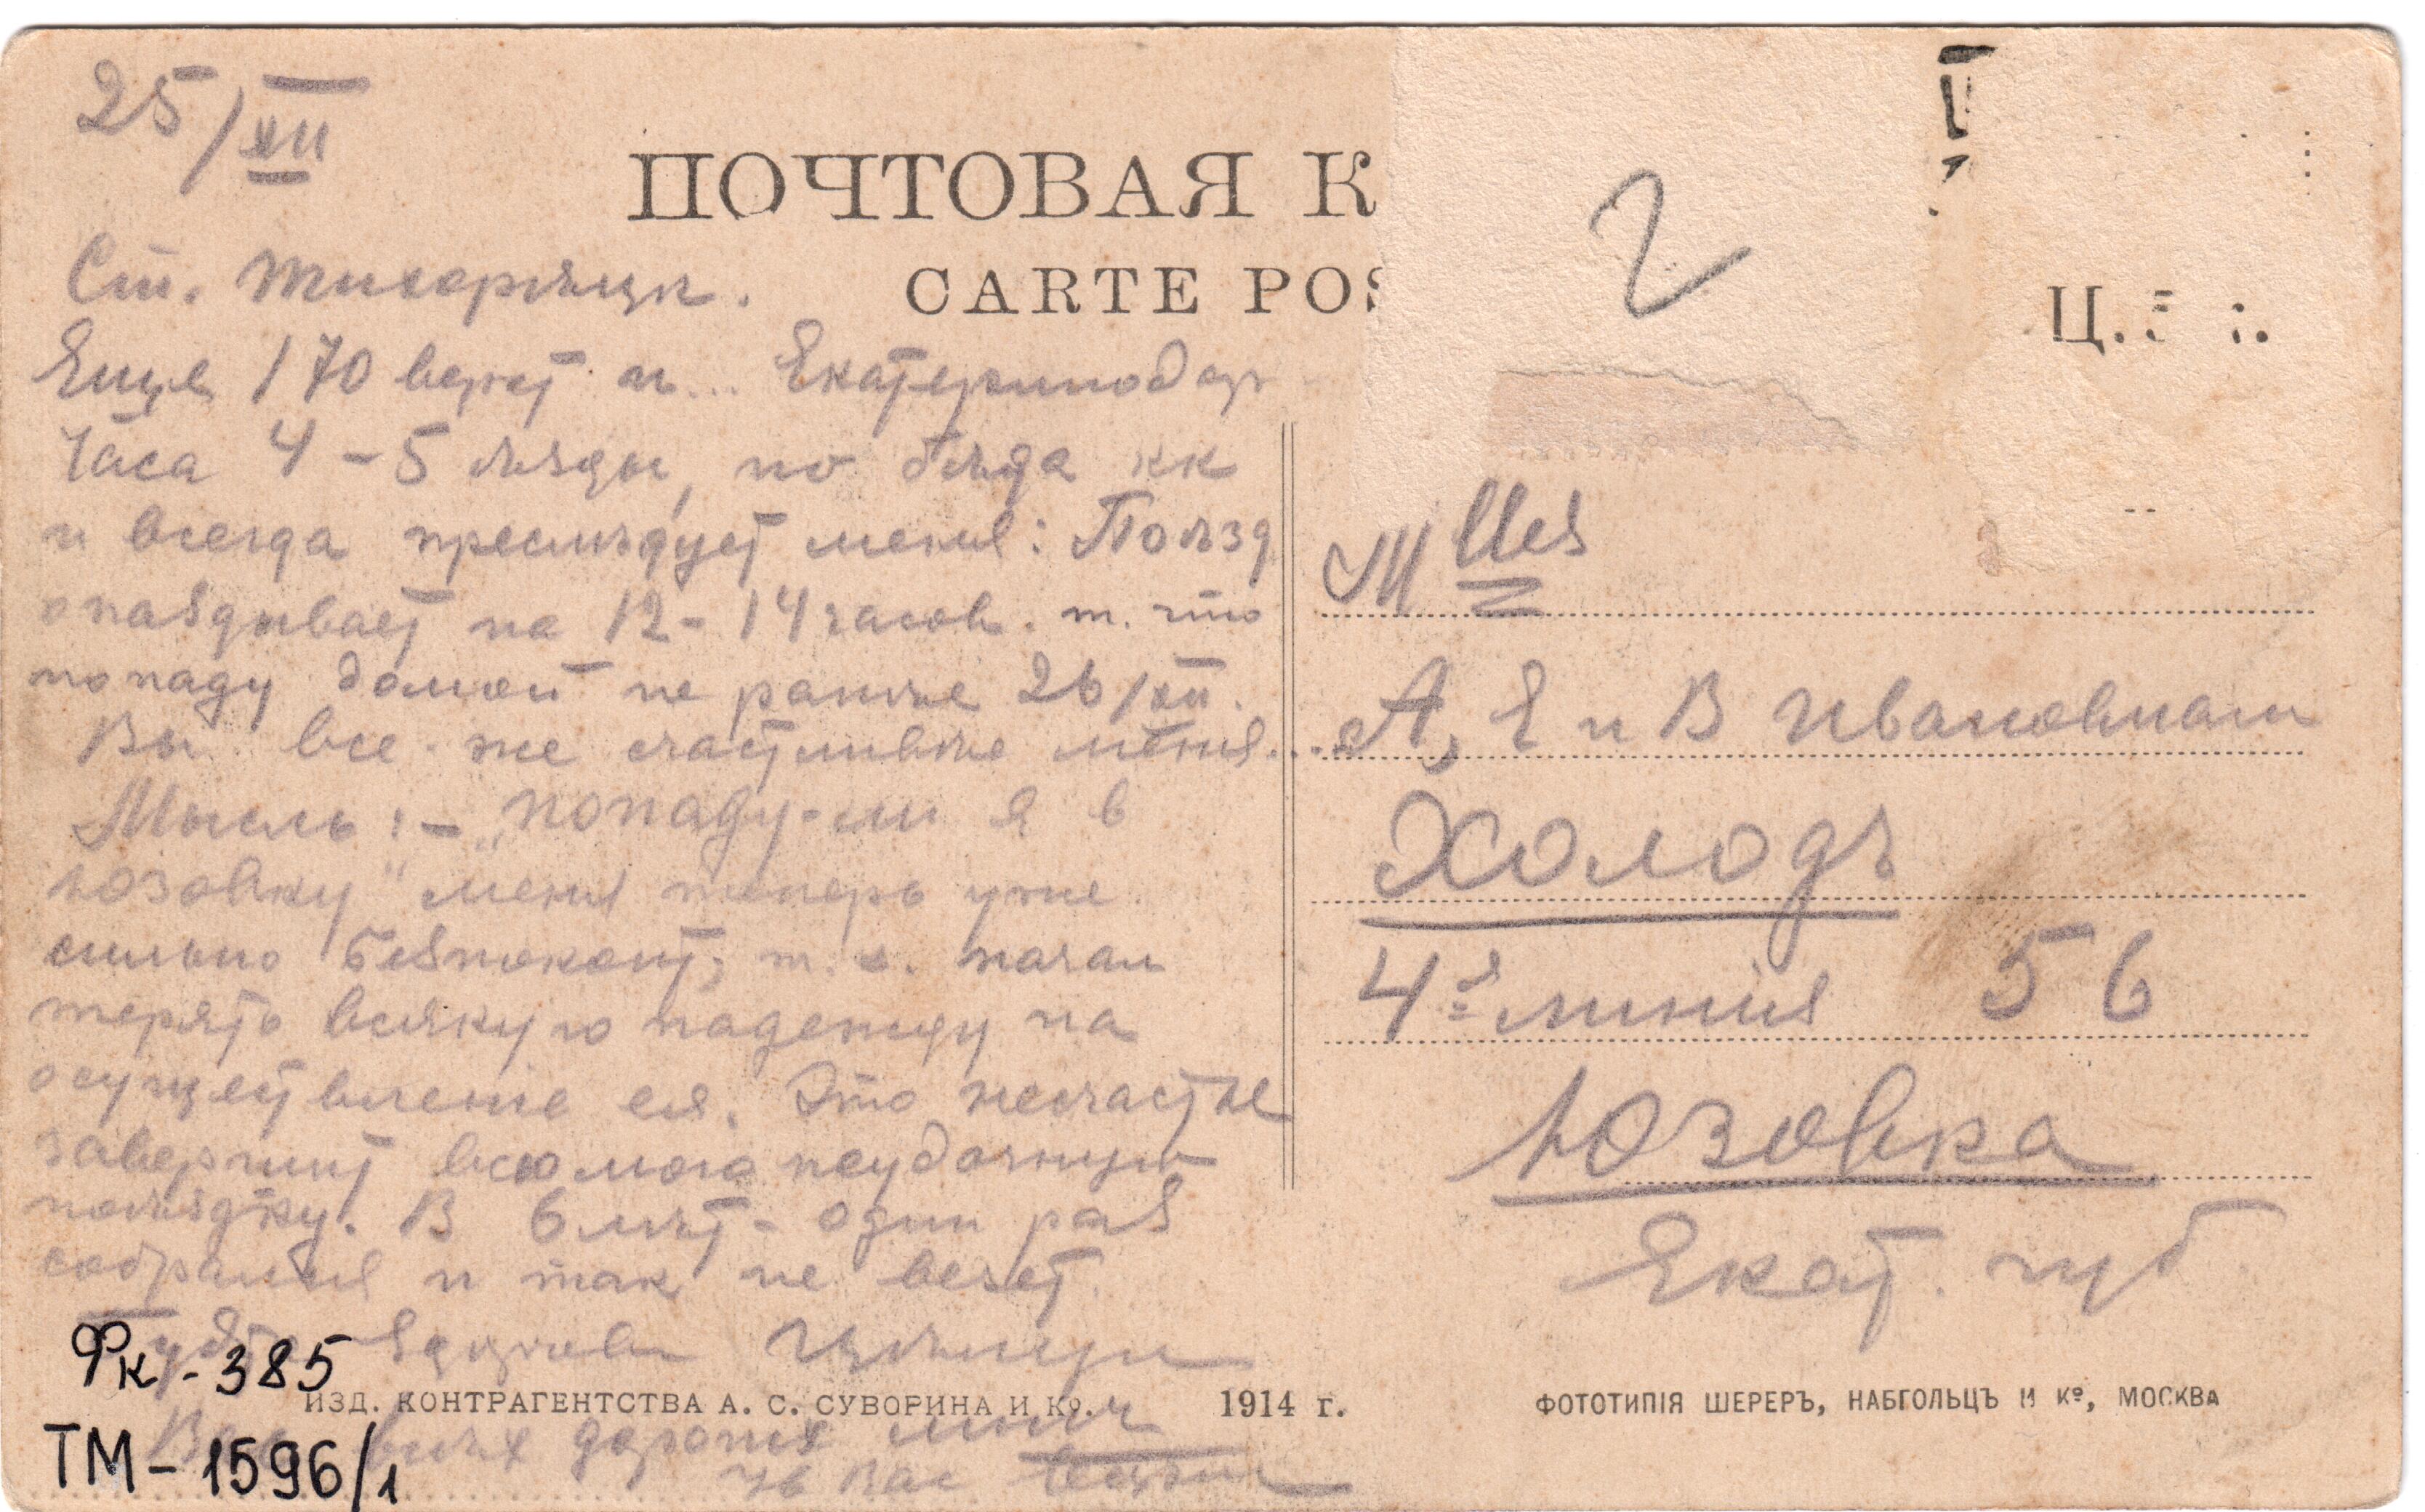 25/XII
ПОЧТОВАЯ К
CARTE POS
Ст. Тихорѣцк.
Еще 170 верст и... Екатеринодар
Часа 4-5 ѣзды, но бѣда кк
и всегда преслѣдует меня: Поѣзд
опаздывает на 12-14 часов. т. что
попаду домой не ранѣе 26/XII.
Вы все же счастливѣе меня...
Мысль: - „попаду-ли я в
Юзовку" меня теперь уже
сильно безпокоит, т. к. начал
терять всякую надежду на
осуществленіе ея. Это несчастье
завершит всю мою неудачную
поѣздку. В 6 лѣт - один раз
собрался и так не везет.
дорогих
Вас
2
Ц. 5 к.
М
А, Е и В Ивановнам
Холодъ
4-я линія 56
Юзовка
Екат. губ
Фк-385
ТМ-1596/1
ИЗД. КОНТРАГЕНТСТВА А. С. СУВОРИНА И Ко. 1914 г.
ФОТОТИПІЯ ШЕРЕРЪ, НАБГОЛЬЦЪ И Ко, МОСКВА